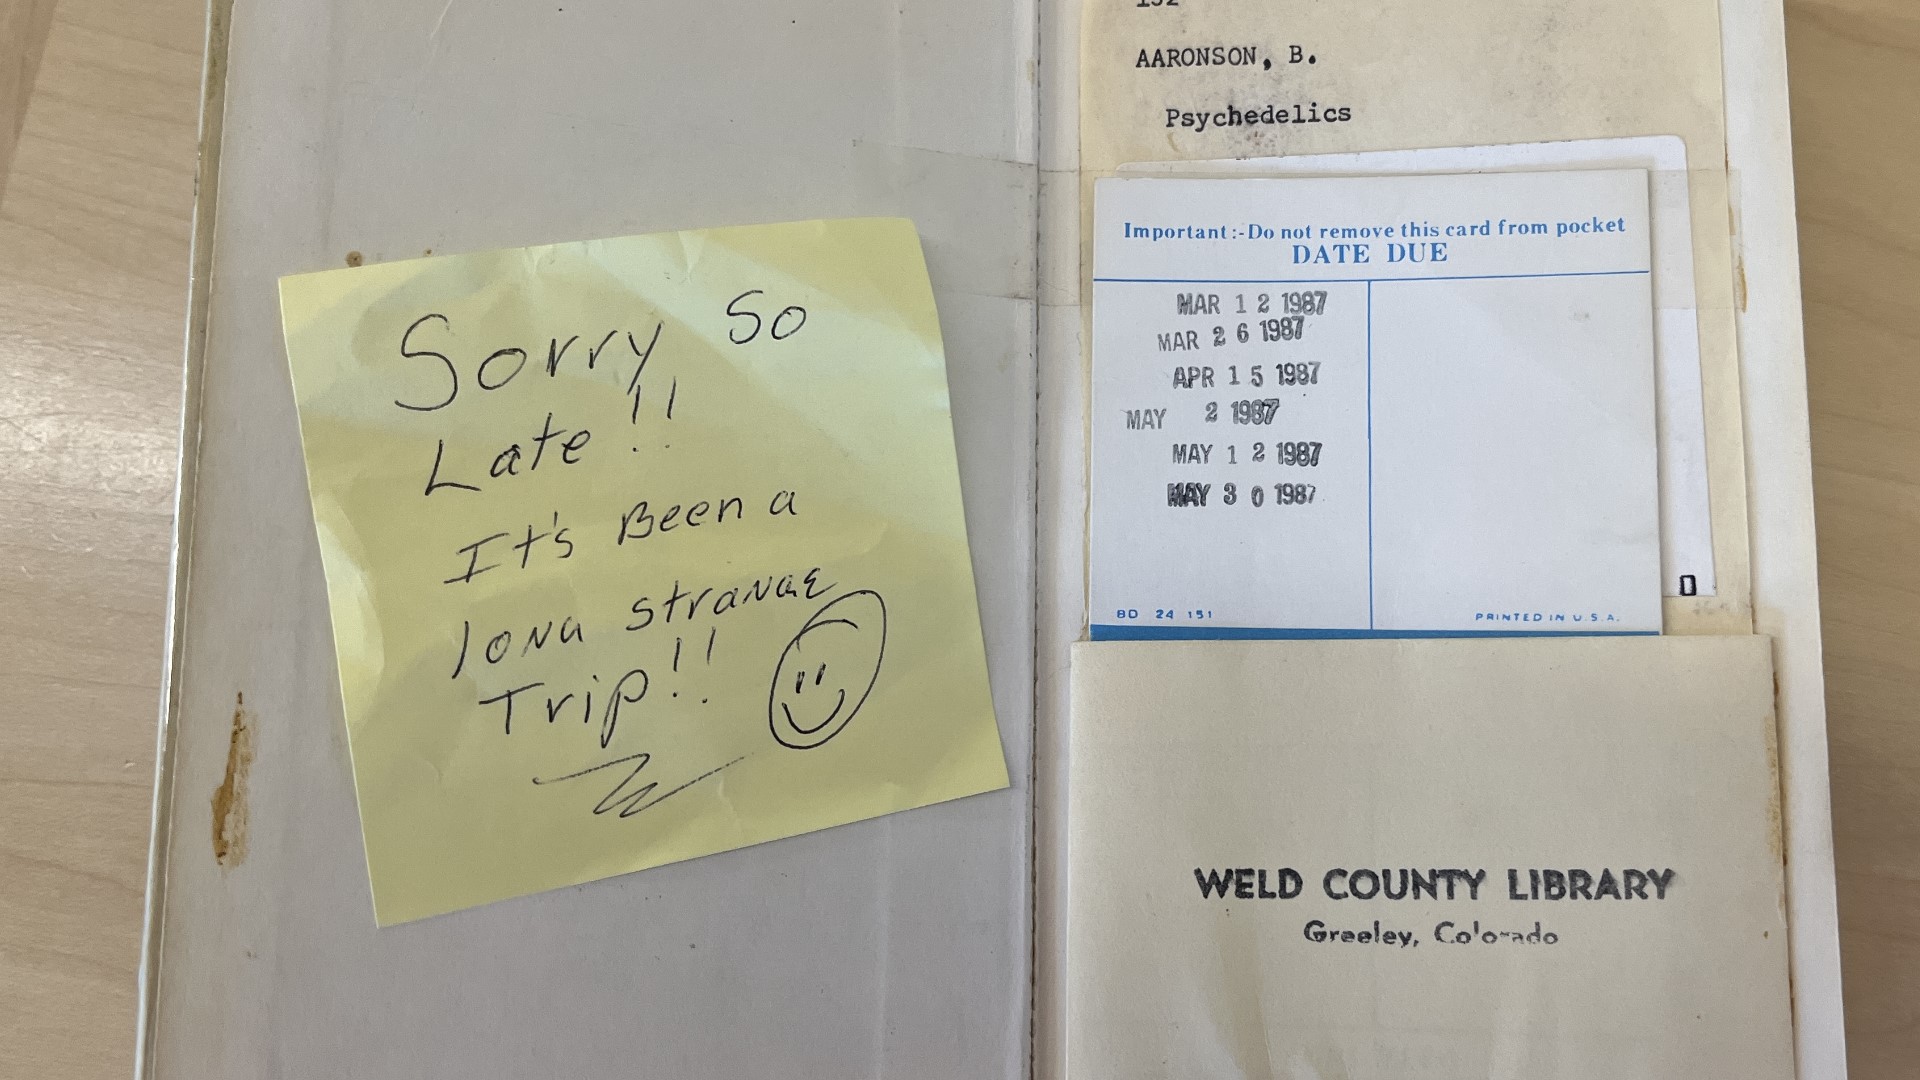 Sorry So
Late!!
It's Been a
long strange
Trip!!
AARONSON, B.
Psychedelics
Important:-Do not remove this card from pocket
DATE DUE
MAR 12 1987
MAR 26 1987
APR 15 1987
MAY 2 1987
MAY 12 1987
MAY 30 1987
BD 24 151
PRINTED IN U.S.A.
D
WELD COUNTY LIBRARY
Greeley, Colorado